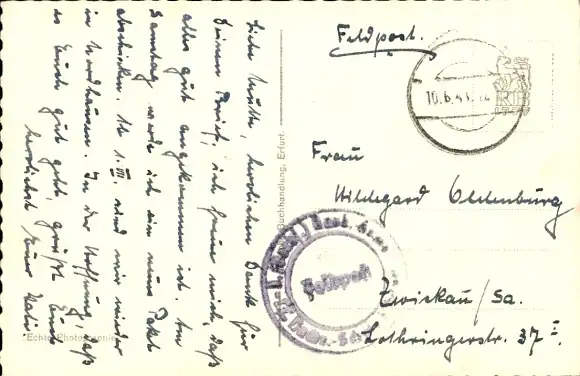 Liebe Mutti, herzlichen Dank für
Deinen Brief, ich freue mich, daß
alles gut angekommen ist. Am
Samstag werde ich ein neues Paket
abschicken. Ab 1. VII. sind wir wieder
in Nordhausen. In der Hoffnung, daß
es Euch gut geht, grüßt Euch
herzlichst Euer
Echte Photographie
Buchhandlung, Erfurt.
Feldpost.
10.6.41.
Frau
Hildegard Oldenburg
Zwickau/Sa.
Lothringerstr. 37 I.
Feldpost